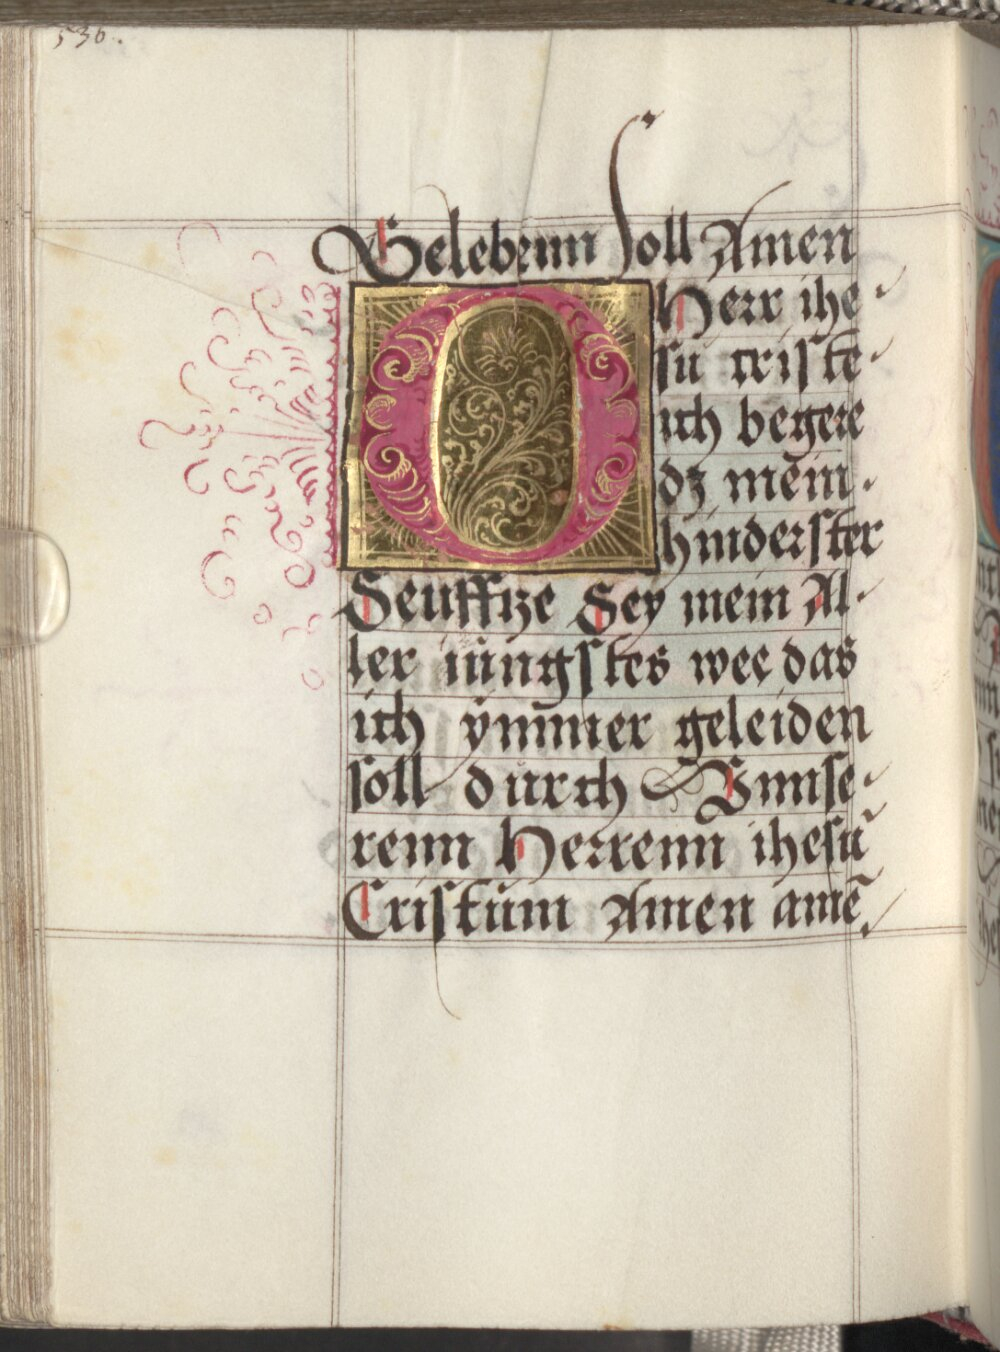 536.
Gelebenn soll Amen
O Herr ihe
su criste
ich begere
dz mein
hinderster
Seufftze Sey mein Al
ler iungstes wee das
ich ymmer geleiden
soll durch Vnnse
renn Herrenn ihesu
Cristum Amen amē